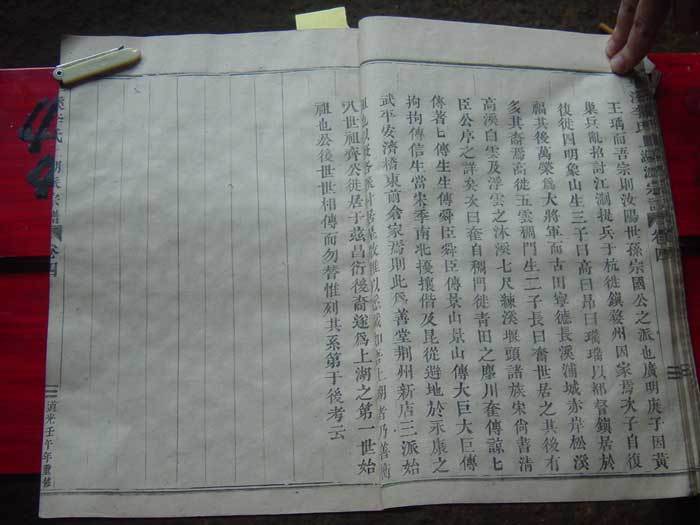 王瑀而吾宗則汝陽世孫宗國公之派也廣明庚子因黃
巢兵亂招討江湖提兵于杭徙鎮婺州因家焉次子自復
後徙四明象山生三子曰高曰昻曰璞璞以都督鎮居於
福其後萬榮爲大將軍而古田寧德長溪浦城赤岸松溪
多其裔焉高徙五雲稠門生二子長曰奮世居之其後有
高溪白雲及浮雲之沐溪七尺練溪堰頭諸族宋尙書清
臣公序之詳矣次曰奎自稠門徙青田之廖川奎傳諒七
傳著七傳生生傳舜臣舜臣傳景山景山傳大巨大巨傳
拘拘傳信生當宋季南北擾攘偕及昆從遯地於永康之
武平安濟橋東前倉家焉則此爲善堂荆州新店三派始
上湖者乃善衡
八世祖齊公徙居于茲昌衍後裔遂爲上湖之第一世始
祖也公後世世相傳而勿替惟列其系第于後考云
宗譜
卷四
道光壬午年重修
卷四